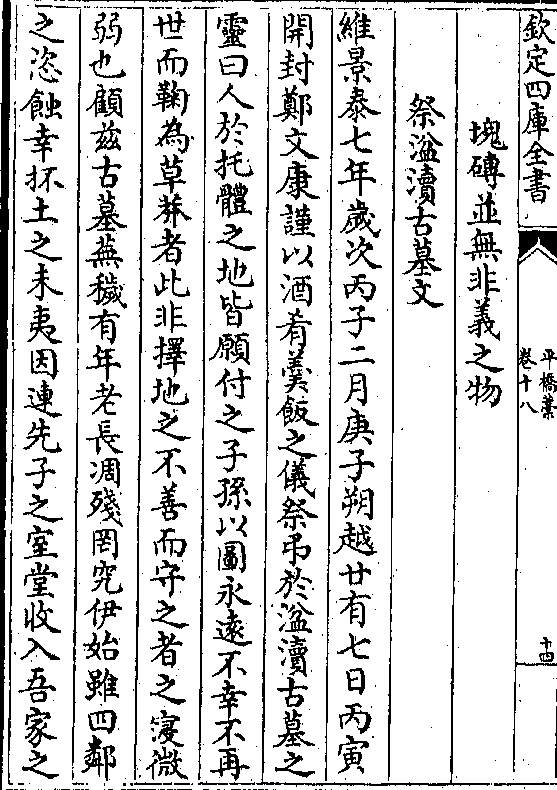 欽定四庫全書
平橋藁
卷十八
十四
塊磚並無非義之物
祭湓瀆古墓文
維景泰七年歲次丙子二月庚子朔越廿有七日丙寅
開封鄭文康謹以酒肴羮飯之儀祭弔於湓瀆古墓之
靈曰人於托體之地皆願付之子孫以圖永遠不幸不再
世而鞠為草莽者此非擇地之不善而守之者之寖微
弱也顧兹古墓蕪穢有年老長凋殘罔究伊始雖四鄰
之恣蝕幸抔土之未夷因連先子之室堂收入吾家之